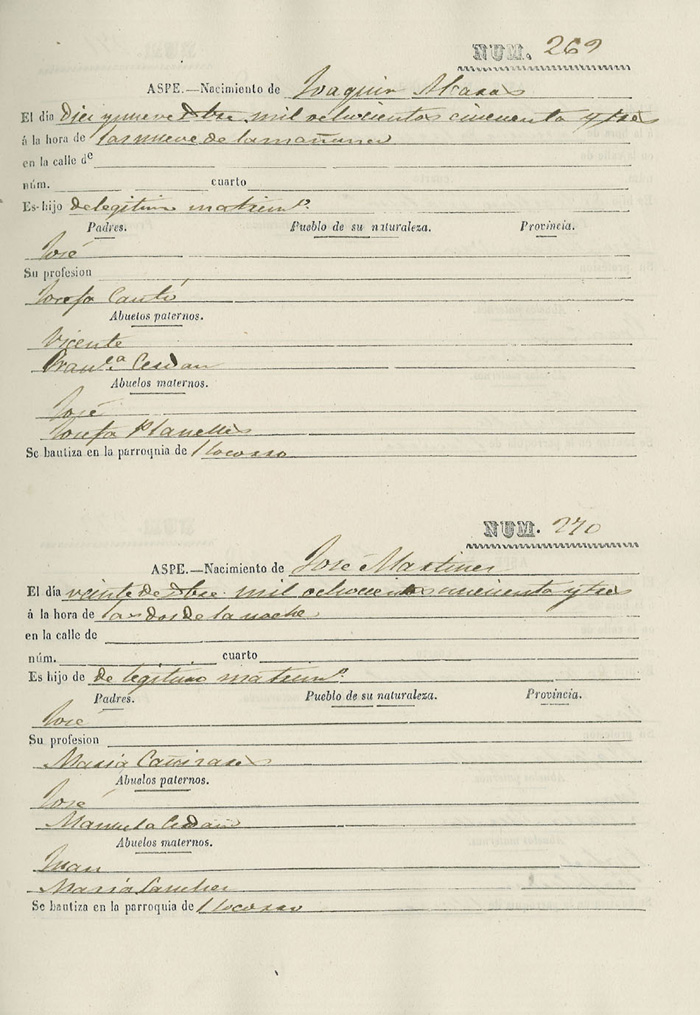 NUM. 269
ASPE.—Nacimiento de Joaquin Alcaras
El dia Diez y nueve Dbre mil ochocientos cincuenta y tres
á la hora de las nueve de la mañana
en la calle de
núm. cuarto
Es hijo de legitim matrim.º
Padres. Pueblo de su naturaleza. Provincia.
José
Su profesion
Josefa Cantó
Abuelos paternos.
Vicente
Fran.ca Cerdan
Abuelos maternos.
José
Josefa Planelles
Se bautiza en la parroquia de
NUM. 270
ASPE.—Nacimiento de José Martines
El dia veinte de Dbre mil ochocientos cincuenta y tres
á la hora de las dos de la noche
en la calle de
núm. cuarto
Es hijo de de legitimo matrim.º
Padres. Pueblo de su naturaleza. Provincia.
José
Su profesion
Maria
Abuelos paternos.
José
Manuela Cerdan
Abuelos maternos.
Juan
Maria Sanches
Se bautiza en la parroquia de